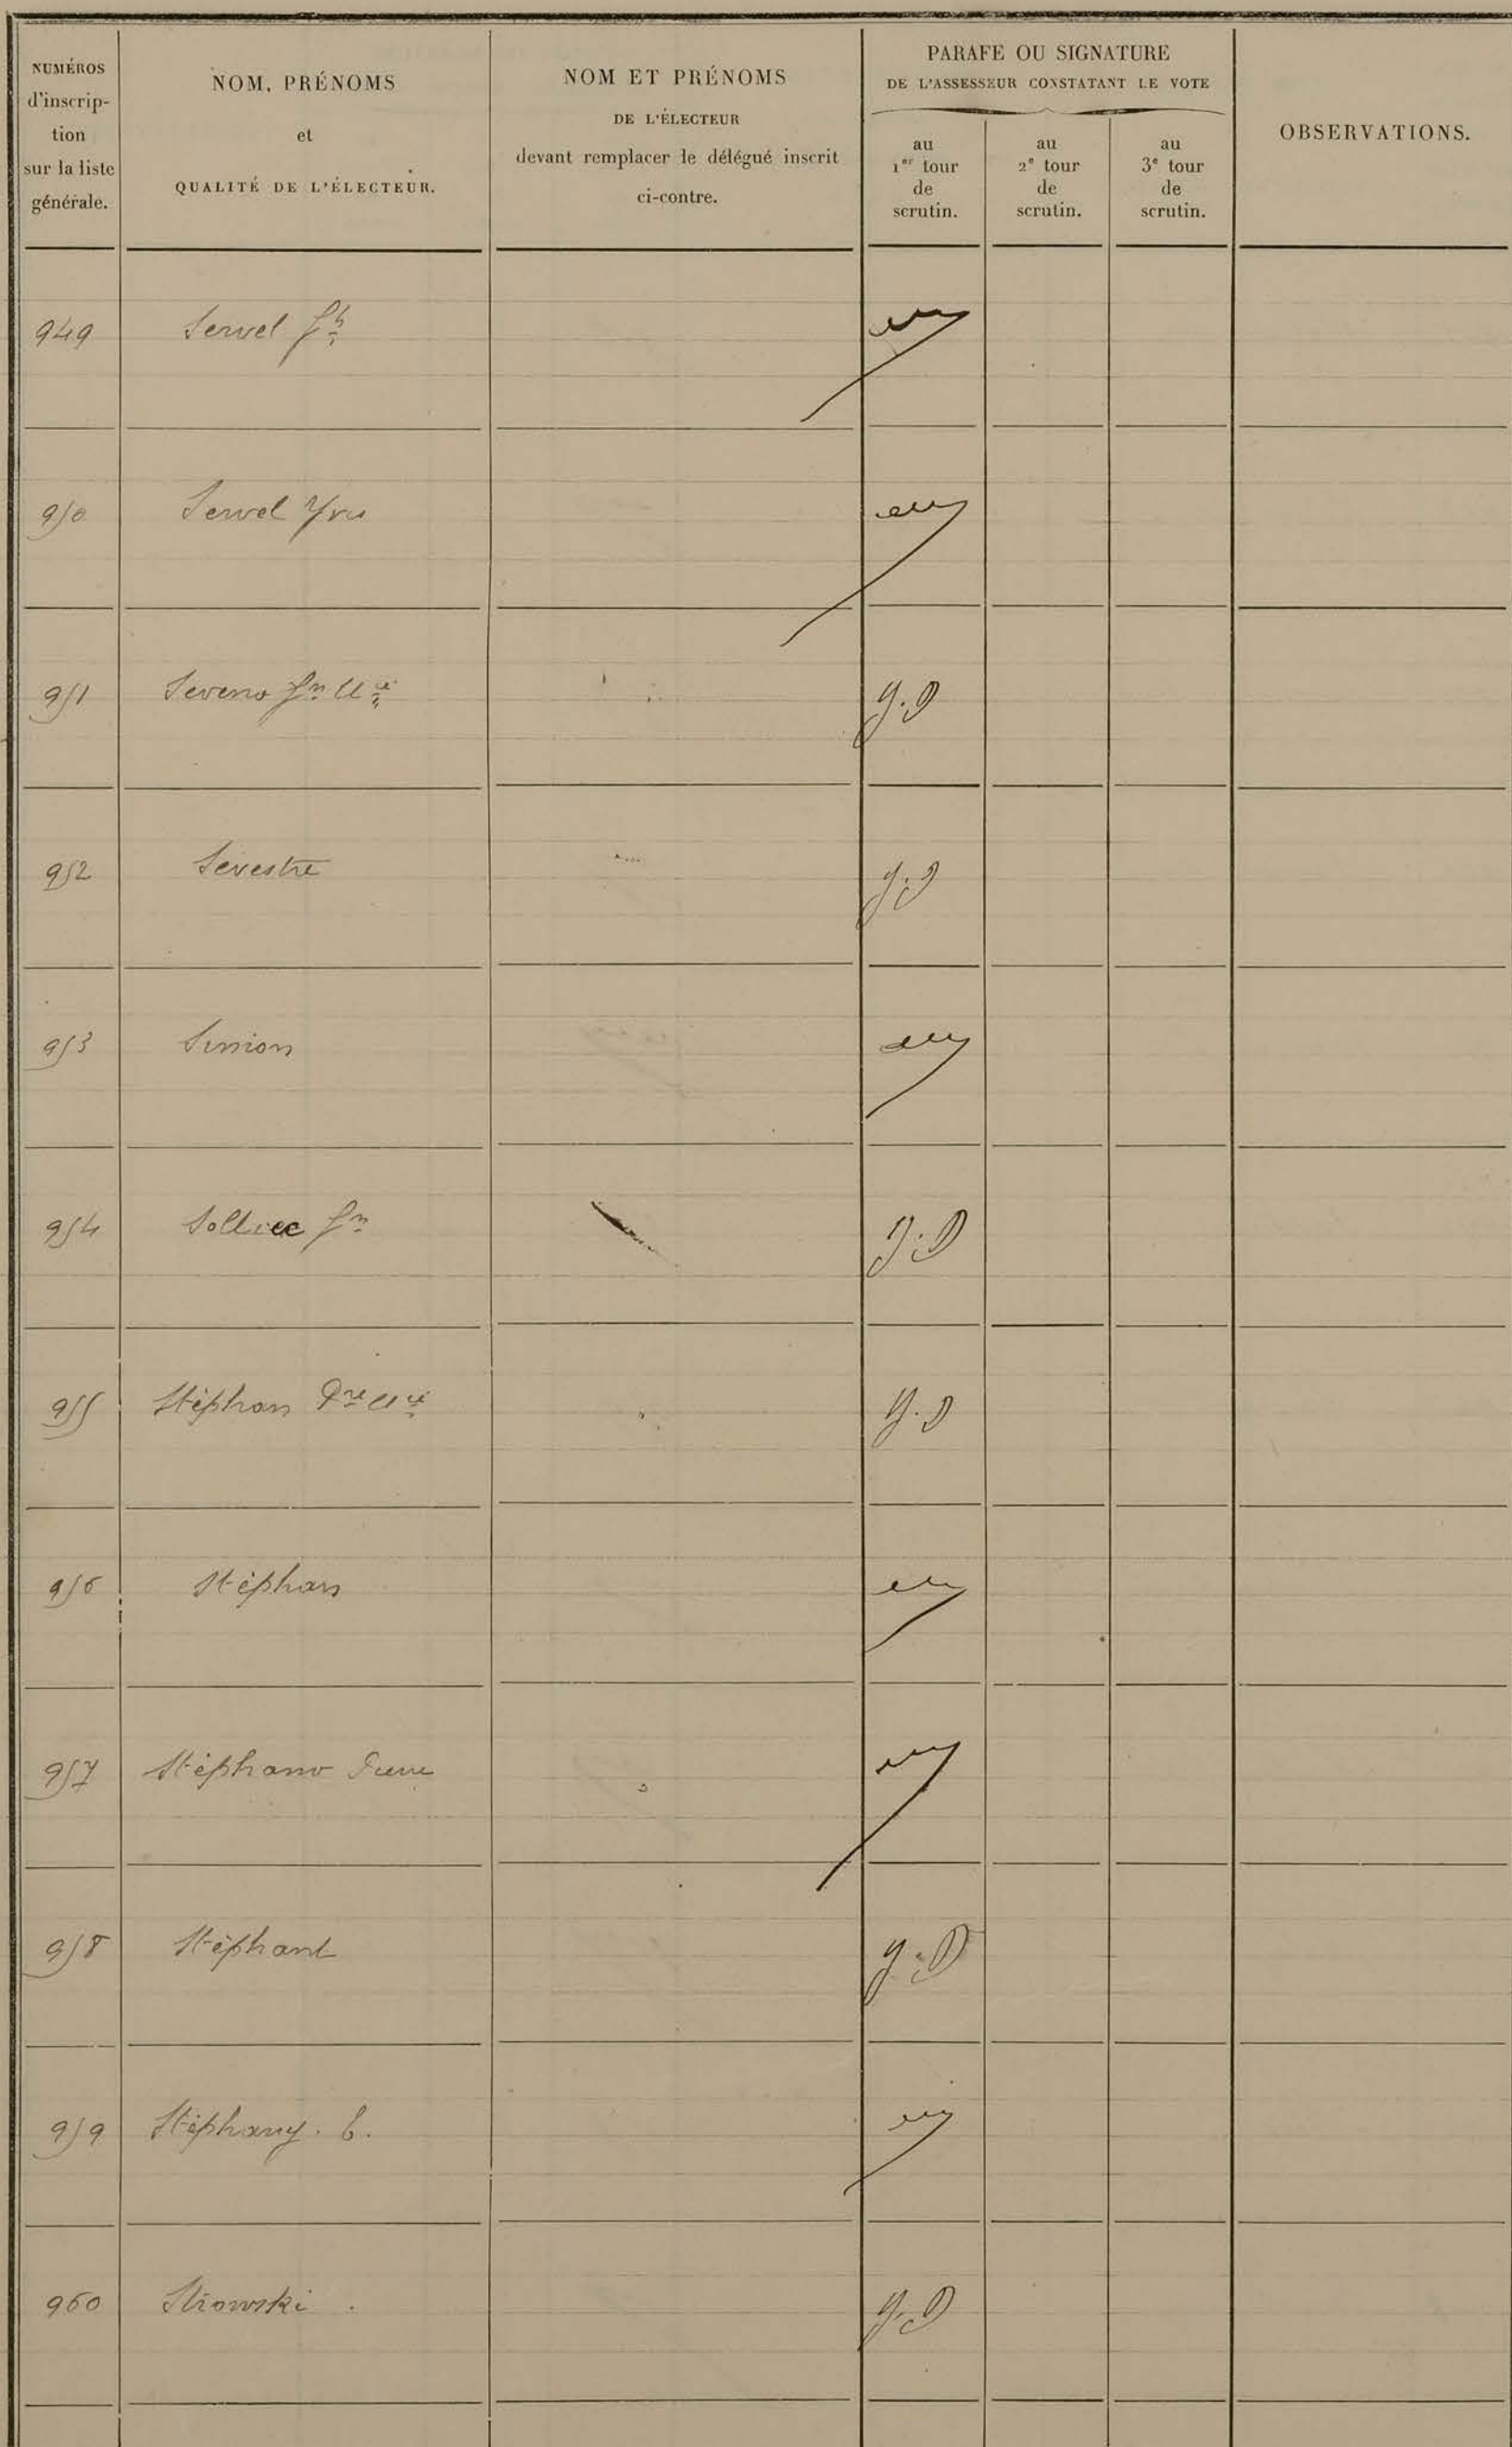 NUMÉROS
d'inscrip-
tion
sur la liste
générale.
NOM, PRÉNOMS
et
QUALITÉ DE L'ÉLECTEUR.
NOM ET PRÉNOMS
DE L'ÉLECTEUR
devant remplacer le délégué inscrit
ci-contre.
PARAFE OU SIGNATURE
DE L'ASSESSEUR CONSTATANT LE VOTE
au
1er tour
de
scrutin.
au
2e tour
de
scrutin.
au
3e tour
de
scrutin.
OBSERVATIONS.
949 Servel Jh
950 Servel Yves
951 Seveno Jn
952 Sevestre
953 Simion
954 Solliec Jn
955 Stéphan Pre
956 Stéphan
957 Stéphano Pierre
958 Stéphant
959 Stéphany.
960 Strowski.